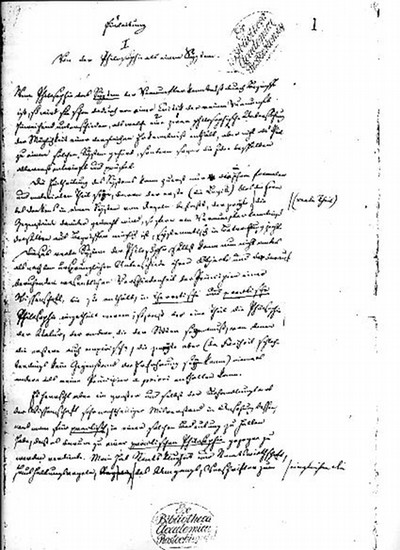 Einleitung
1
I
Von der Philosophie als einem System.
Wenn Philosophie das System der Vernunfterkentnis durch Begriffe
ist, so wird sie schon dadurch von einer Critik der reinen Vernunft
hinreichend unterschieden, als welche zwar eine philosophische Untersuchung
der Möglichkeit einer dergleichen Erkentnis enthält, aber nicht als Theil
zu einem solchen System gehört, sondern so gar die Idee desselben
allererst entwirft und prüfet.
Die Eintheilung des Systems kann zuerst nur die in ihren formalen
und materialen Theil seyn, davon der erste (die Logik) blos die Form
des Denkens in einem System von Regeln befaßt, der zweyte die
(reale Theil)
Gegenstände darüber gedacht wird, so fern ein Vernunfterkentnis
derselben aus Begriffen möglich ist, systematisch in Betrachtung zieht.
Dieses reale System der Philosophie selbst kann nun nicht anders
als nach dem ursprünglichen Unterschiede ihrer Objecte und der darauf
beruhenden wesentlichen Verschiedenheit der Principien einer
Wissenschaft, die sie enthält, in theoretische und practische
Philosophie eingetheilt werden; so, daß der eine Theil die Philosophie
der Natur, der andere die der Sitten seyn muß, von denen
die erstere auch empirische, die zweyte aber (da Freiheit schlech-
terdings kein Gegenstand der Erfahrung seyn kann) niemals
andere als reine Principien a priori enthalten kann.
Es herrscht aber ein großer und selbst der Behandlungsart
der Wissenschaft sehr nachtheiliger Misverstand in Ansehung dessen,
was man für practisch, in einer solchen Bedeutung zu halten
habe, daß es darum zu einer practischen Philosophie gezogen zu
werden verdiente. Man hat Staatsklugheit und Staatswirthschaft,
Haushaltungsregeln, des Umgangs, Vorschriften zum
imgleichen die
Ex
Bibliotheca
Academica
Rostochiensi